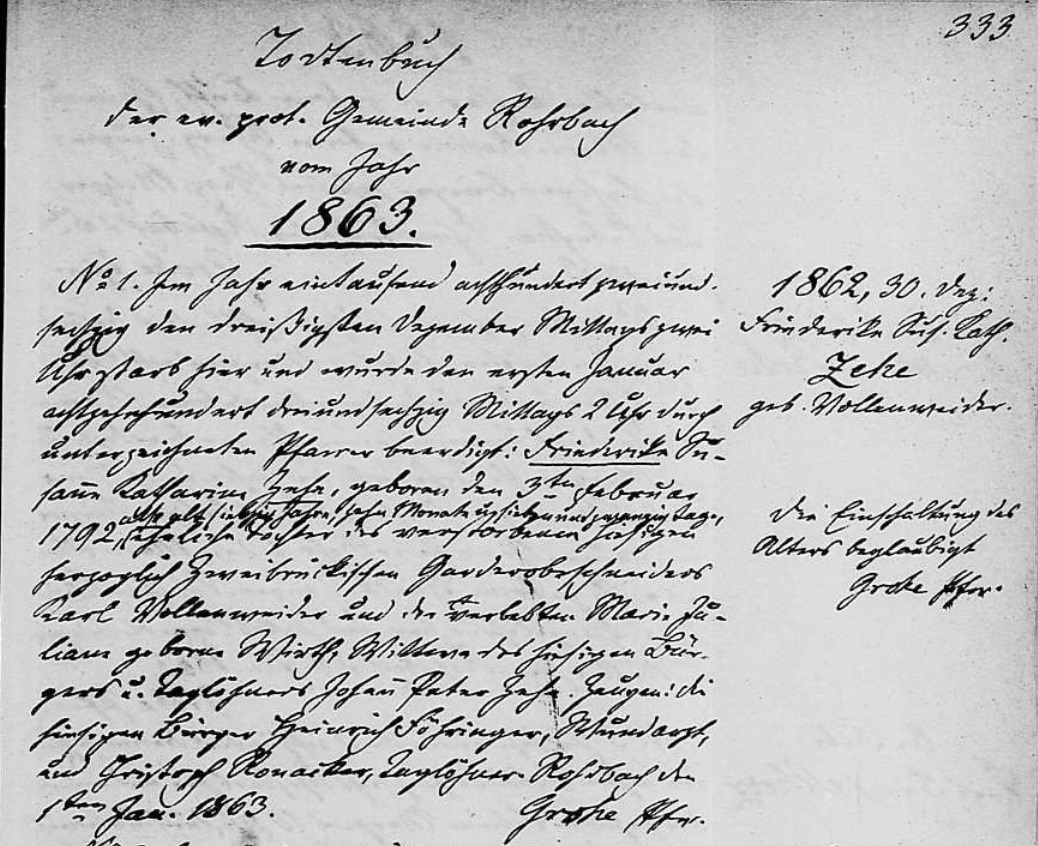 333
Todtenbuch
der ev. prot. Gemeinde Rohrbach
vom Jahr
1863.
No 1. Im Jahr eintausend achthundert zweiund-
sechzig den dreißigsten Dezember Mittags zwei
Uhr starb hier und wurde den ersten Januar
achtzehnhundert dreiundsechzig Mittags 2 Uhr durch
unterzeichneten Pfarrer beerdigt: Friederike Su-
sanna Katharina Zehe, geboren den 3ten Februar
also alt siebzig Jahre, zehn Monate u. siebenundzwanzig Tage,
1792, eheliche Tochter des verstorbenen hiesigen
herzoglich Zweibrückischen Garderobeschneiders
Karl Vollenweider und der verlebten Marie Ju-
liane geborne Wirth, Wittwe des hiesigen Bür-
gers u. Taglöhners Johann Peter Zehe. Zeugen: die
hiesigen Bürger Heinrich Föhringer, Wundarzt,
und Christoph Konacker, Taglöhner. Rohrbach den
1ten Jan. 1863. Grohe Pfr.
1862, 30. Dez:
Friederike Sus. Kath.
Zehe
geb. Vollenweider.
Die Einschaltung des
Alters beglaubigt
Grohe Pfr.